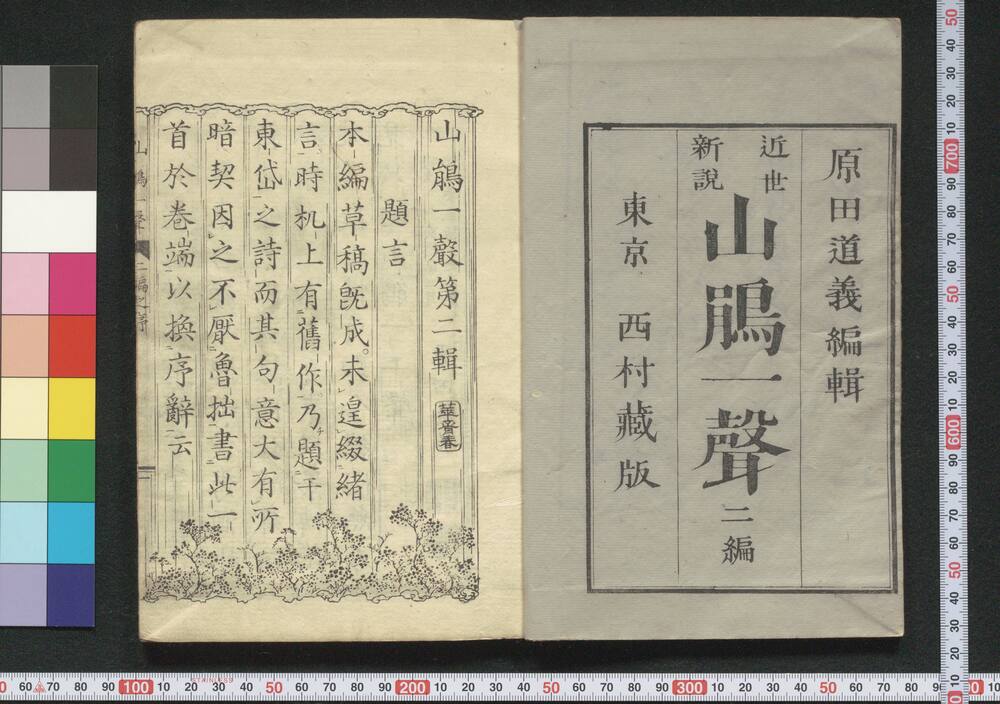 原田道義編輯
近世
新説
山鵑一聲二編
東京 西村藏版
山鵑一聲第二輯
題言
本編草稿既成。未遑綴緒
言時机上有舊作乃題干
東岱之詩而其句意大有所
暗契因之不厭魯拙書此一
首於卷端以換序辭云
二編之序
STAINLESS